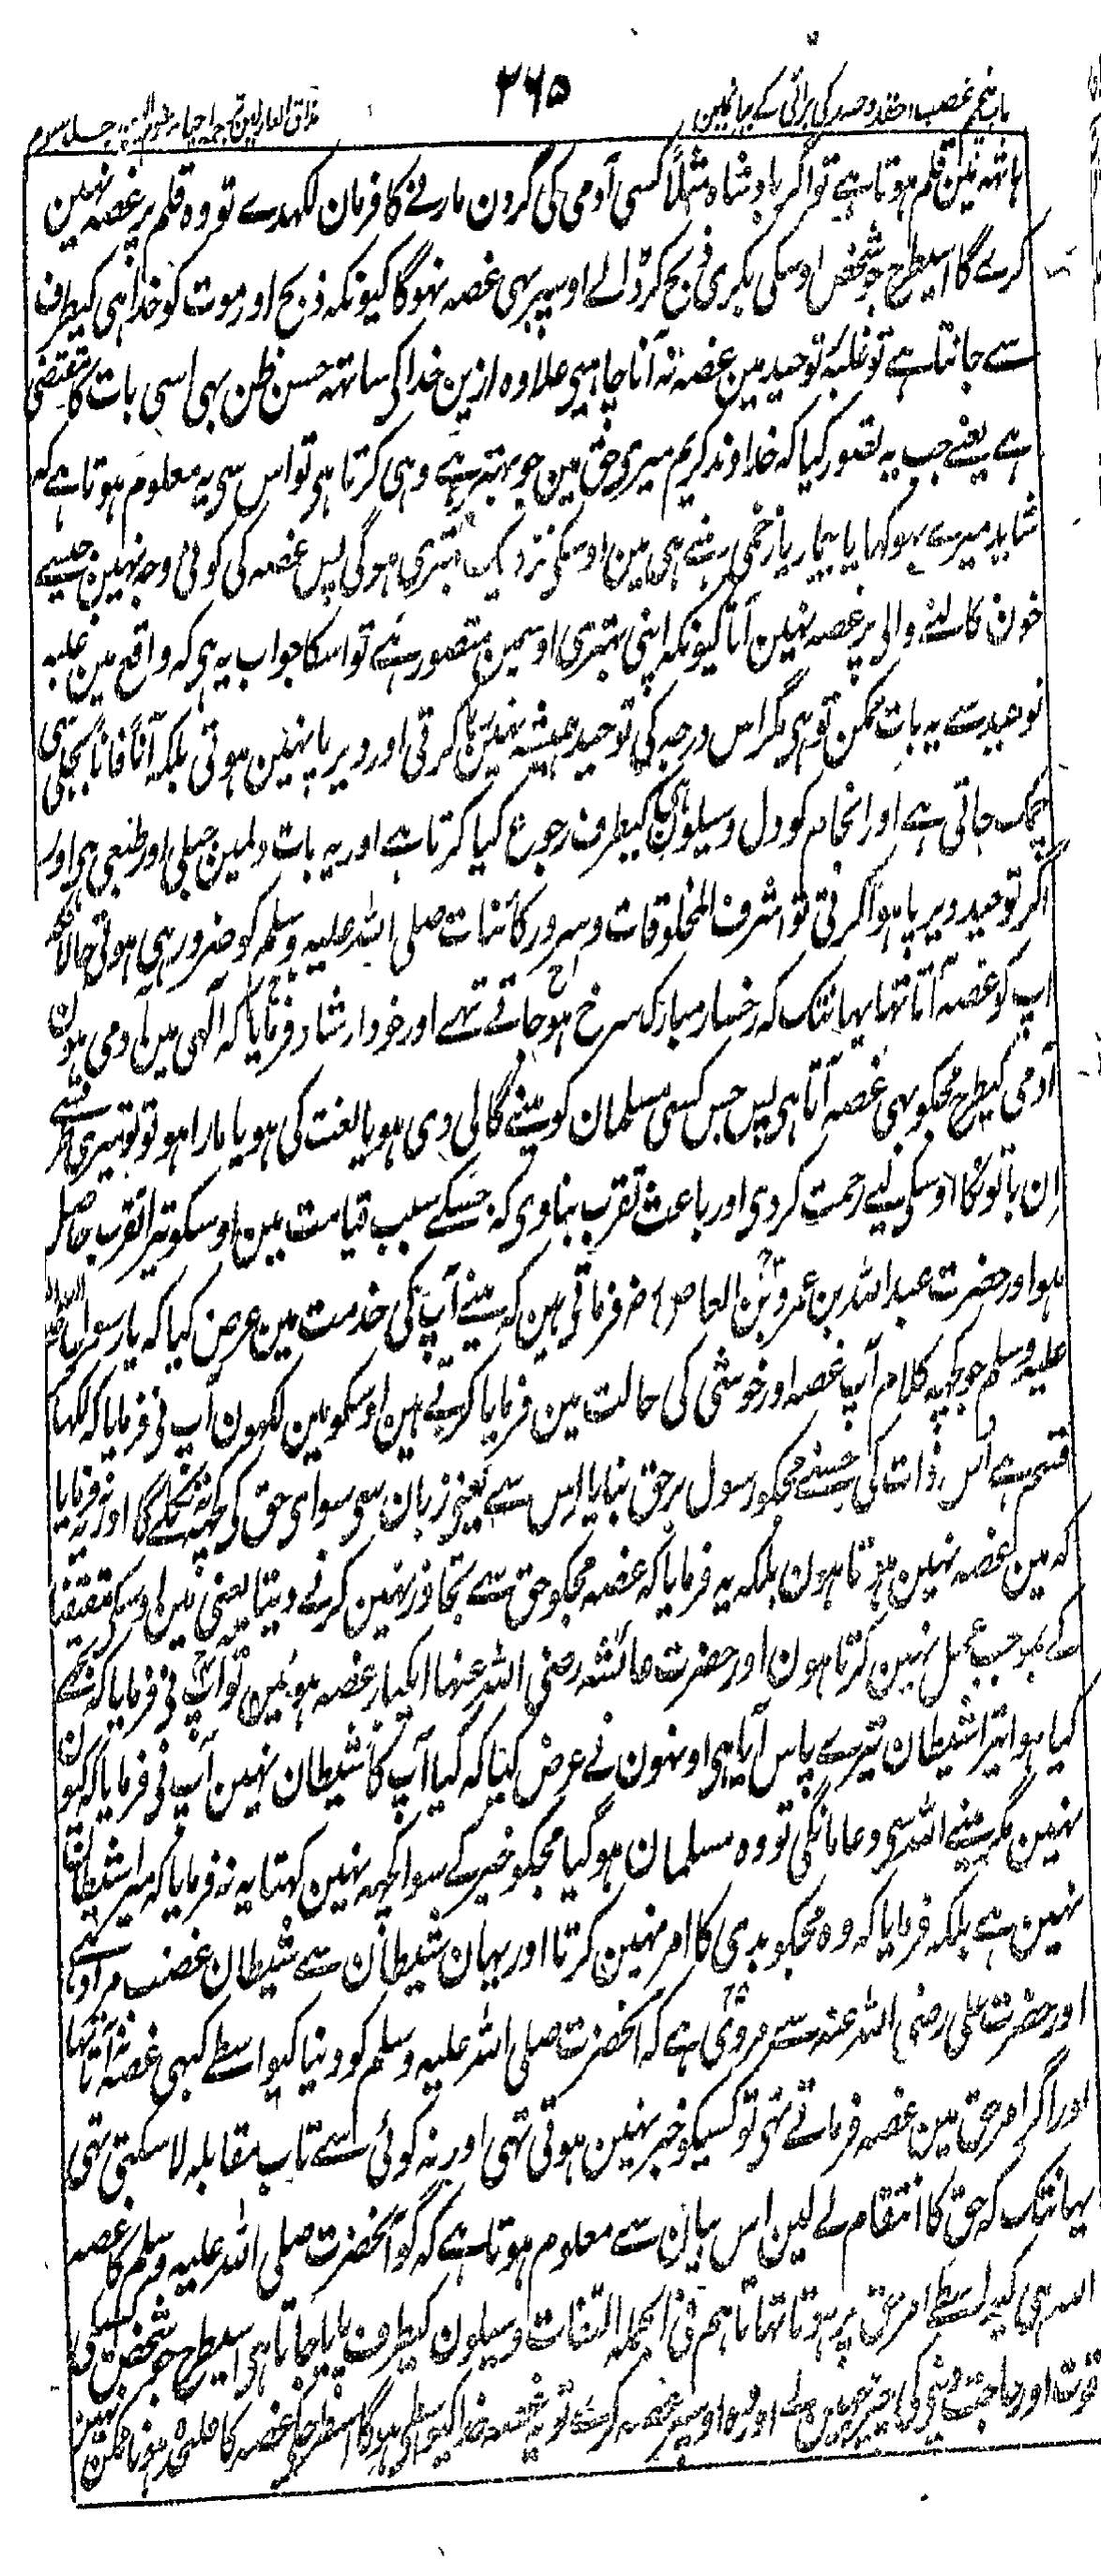 باب پنجم غصب و حقد و حسد کی برائی کے بیانمین
۲۶۵
مذاق العارفین ترجمہ احیاء علوم الدین جلد سوم
ہاتھہ مین قلم ہوتا ہے تو اگر بادشاہ مثلاً کسی آدمی کی گردن مارنے کا فرمان لکہدے تو وہ قلم پر غصہ نہین
کرے گا اسیطرح جو شخص اوسکی بکری ذبح کر ڈالے اوسپر بہی غصہ نہوگا کیونکہ ذبح اور موت کو خدا ہی کیطرف
سے جانتا ہے تو غلبۂ توحید مین غصہ نہ آنا چاہیے علاوہ ازین خدا کی ساتھہ حسن ظن بہی اسی بات کا مقتضی
ہے یعنے جب یہ تصور کیا کہ خداوند کریم میری حق مین جو بہتر ہے وہی کرتا ہی تو اس سی یہ معلوم ہوتا ہے کہ
شاید میرے بہوکہا یا بیمار یا زخمی رہنے ہی مین اوسکی نزدیک بہتری ہوگی پس غصہ کی کوئی وجہ نہین جیسے
خون نکالنے والی پر غصہ نہین آتا کیونکہ اپنی بہتری اوسمین متصور ہے تو اسکا جواب یہ ہی کہ واقع مین غلبہ
توحید سے یہ بات ممکن تو ہی مگر اس درجہ کی توحید ہمیشہ نہین رہا کرتی اور دیرپا نہین ہوتی بلکہ آناً فاناً بجلی سی
چمک جاتی ہے اور انجام کو دل وسیلون ہی کیطرف رجوع کیا کرتا ہے اور یہ بات دلمین جبلی اور طبعی ہی اور
اگر توحید دیرپا ہوا کرتی تو اشرف المخلوقات و سرور کائنات صلی اللہ علیہ وسلم کو ضرور ہی ہوتی حالانکہ
آپ کو غصہ آتا تہا یہانتک کہ رخسار مبارک سرخ ہو جاتے تہے اور خود ارشاد فرمایا کہ الہی مین آدمی ہون
آدمی کیطرح مجکو بہی غصہ آتا ہی پس جس کسی مسلمان کو مینے گالی دی ہو یا لعنت کی ہو یا مارا ہو تو تو میری طرف سے
ان باتونکا اوسکی لیے رحمت کردی اور باعث تقرب بنا دی کہ جسکے سبب قیامت مین اوسکو تیرا تقرب حاصل
ہو اور حضرت عبد اللہ بن عمرو بن العاص رضہ فرماتی ہین کہ مینے آپ کی خدمت مین عرض کیا کہ یا رسول اللہ صلی اللہ
علیہ وسلم جو کچہہ کلام آپ غصہ اور خوشی کی حالت مین فرمایا کرتے ہین اوسکو مین لکہون آپ نی فرمایا کہ لکہا
قسم ہے اُس ذات کی جسنے مجکو رسول برحق بنایا اس سے یعنی زبان سی سوای حق کی کچہہ نہ نکلے گا اور یہ نہ فرمایا
کہ مین غصہ نہین ہوتا ہون بلکہ یہ فرمایا کہ غصہ مجکو حق سے تجاوز نہین کرنے دیتا یعنی مین اوسکے مقتضا
کے بموجب عمل نہین کرتا ہون اور حضرت عائشہ رضی اللہ عنہا ایکبار غصہ ہوئین تو آپ نی فرمایا کہ تجہے
کیا ہوا تیرا شیطان تیرے پاس آیا ہی اونہون نے عرض کیا کہ کیا آپ کا شیطان نہین آپ نی فرمایا کہ کیون
نہین مگر مینے اللہ سی دعا مانگی تو وہ مسلمان ہو گیا مجکو خیر کے سوا کچہہ نہین کہتا یہ نہ فرمایا کہ میرا شیطان
نہین ہے بلکہ فرمایا کہ وہ مجکو بدی کا امر نہین کرتا اور یہان شیطان سے شیطان غضب مراد ہے
اور حضرت علی رضی اللہ عنہ سے مروی ہے کہ آنحضرت صلی اللہ علیہ وسلم کو دنیا کیواسطے کبہی غصہ نہ آتا تہا
اور اگر امر حق مین غصہ فرماتے تہی تو کسیکو خبر نہین ہوتی تہی اور نہ کوئی اسے تاب مقابلہ لا سکتی تہی
یہانتک کہ حق کا انتقام لے لین اس بیان سے معلوم ہوتا ہے کہ گو آنحضرت صلی اللہ علیہ وسلم کا غصہ
اللہ ہی کیواسطے امر حق پر ہوتا تہا تاہم فی الجملہ التفات وسیلون کیطرف پایا جاتا ہی اسیطرح جو شخص کسیکی
قوت اور حاجت دینی کی چیز چہین لے اور وہ اوسپر غصہ کرے تو یہ غصہ خدا کیواسطی ہوگا اسطرحکی غصہ کا علیحدہ ہونا ممکن نہین